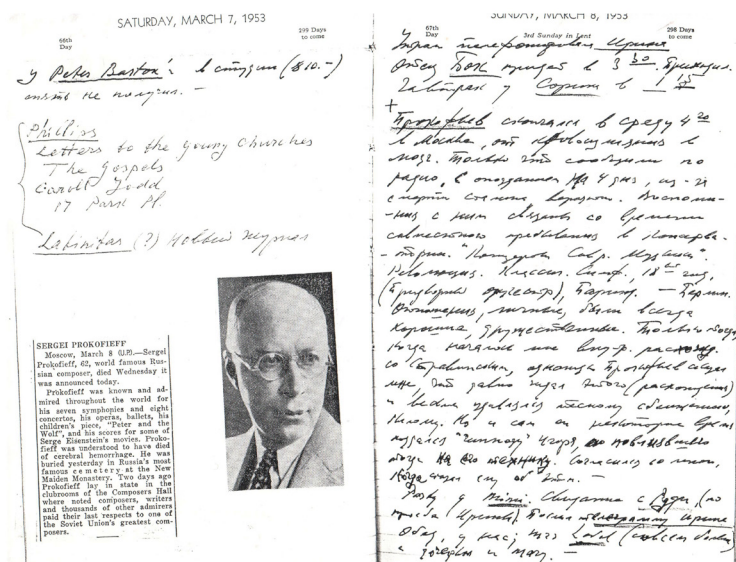 SATURDAY, MARCH 7, 1953
66th
Day
299 Days
to come
У Peter Bartók'а в студии ($10.-)
опять не получил. —
Phillips
Letters to the Young Churches
The Gospels
Caroll Todd
17 Park Pl.
Latinitas (?) Новый журнал
SERGEI PROKOFIEFF
Moscow, March 8 (U.P.).—Sergei
Prokofieff, 62, world famous Rus-
sian composer, died Wednesday it
was announced today.
Prokofieff was known and ad-
mired throughout the world for
his seven symphonies and eight
concertos, his operas, ballets, his
children's piece, "Peter and the
Wolf", and his scores for some of
Serge Eisenstein's movies. Proko-
fieff was understood to have died
of cerebral hemorrhage. He was
buried yesterday in Russia's most
famous cemetery at the New
Maiden Monastery. Two days ago
Prokofieff lay in state in the
clubrooms of the Composers Hall
where noted composers, writers
and thousands of other admirers
paid their last respects to one of
the Soviet Union's greatest com-
posers.
SUNDAY, MARCH 8, 1953
67th
Day
3rd Sunday in Lent
298 Days
to come
Утром телефонировал
Отец придет в 3 30.
Завтрак у Сорина в 1 15
+
Прокофьев скончался в среду 4 го
в Москве, от кровоизлияния в
мозг. Только что сообщили по
радио, с опозданием на 4 дня, из-за
смерти Сталина, вероятно. Воспоми-
-ния с ним связаны со времени
совместного пребывания в Консерва-
-тории. "Концерты Совр. Музыки".
Революция. Классич. Симф., 18 год,
(Придворный оркестр), Париж. —
Отношения, личные, были всегда
хорошие, дружественные. Только
когда начались мои внутр. расхожд.
со Стравинским, однажды Прокофьев сказал
мне, что давно ждал этого (расхождения)
и весьма удивлялся тесному общению,
нашему. Но и сам он некоторое время
находился Игоря, повлиявшего
тогда на его технику. Согласился со мною,
когда сказал ему об этом. —
у Mimi. с
телеграмму
у нас, mrs
и дочерью и мачу. —